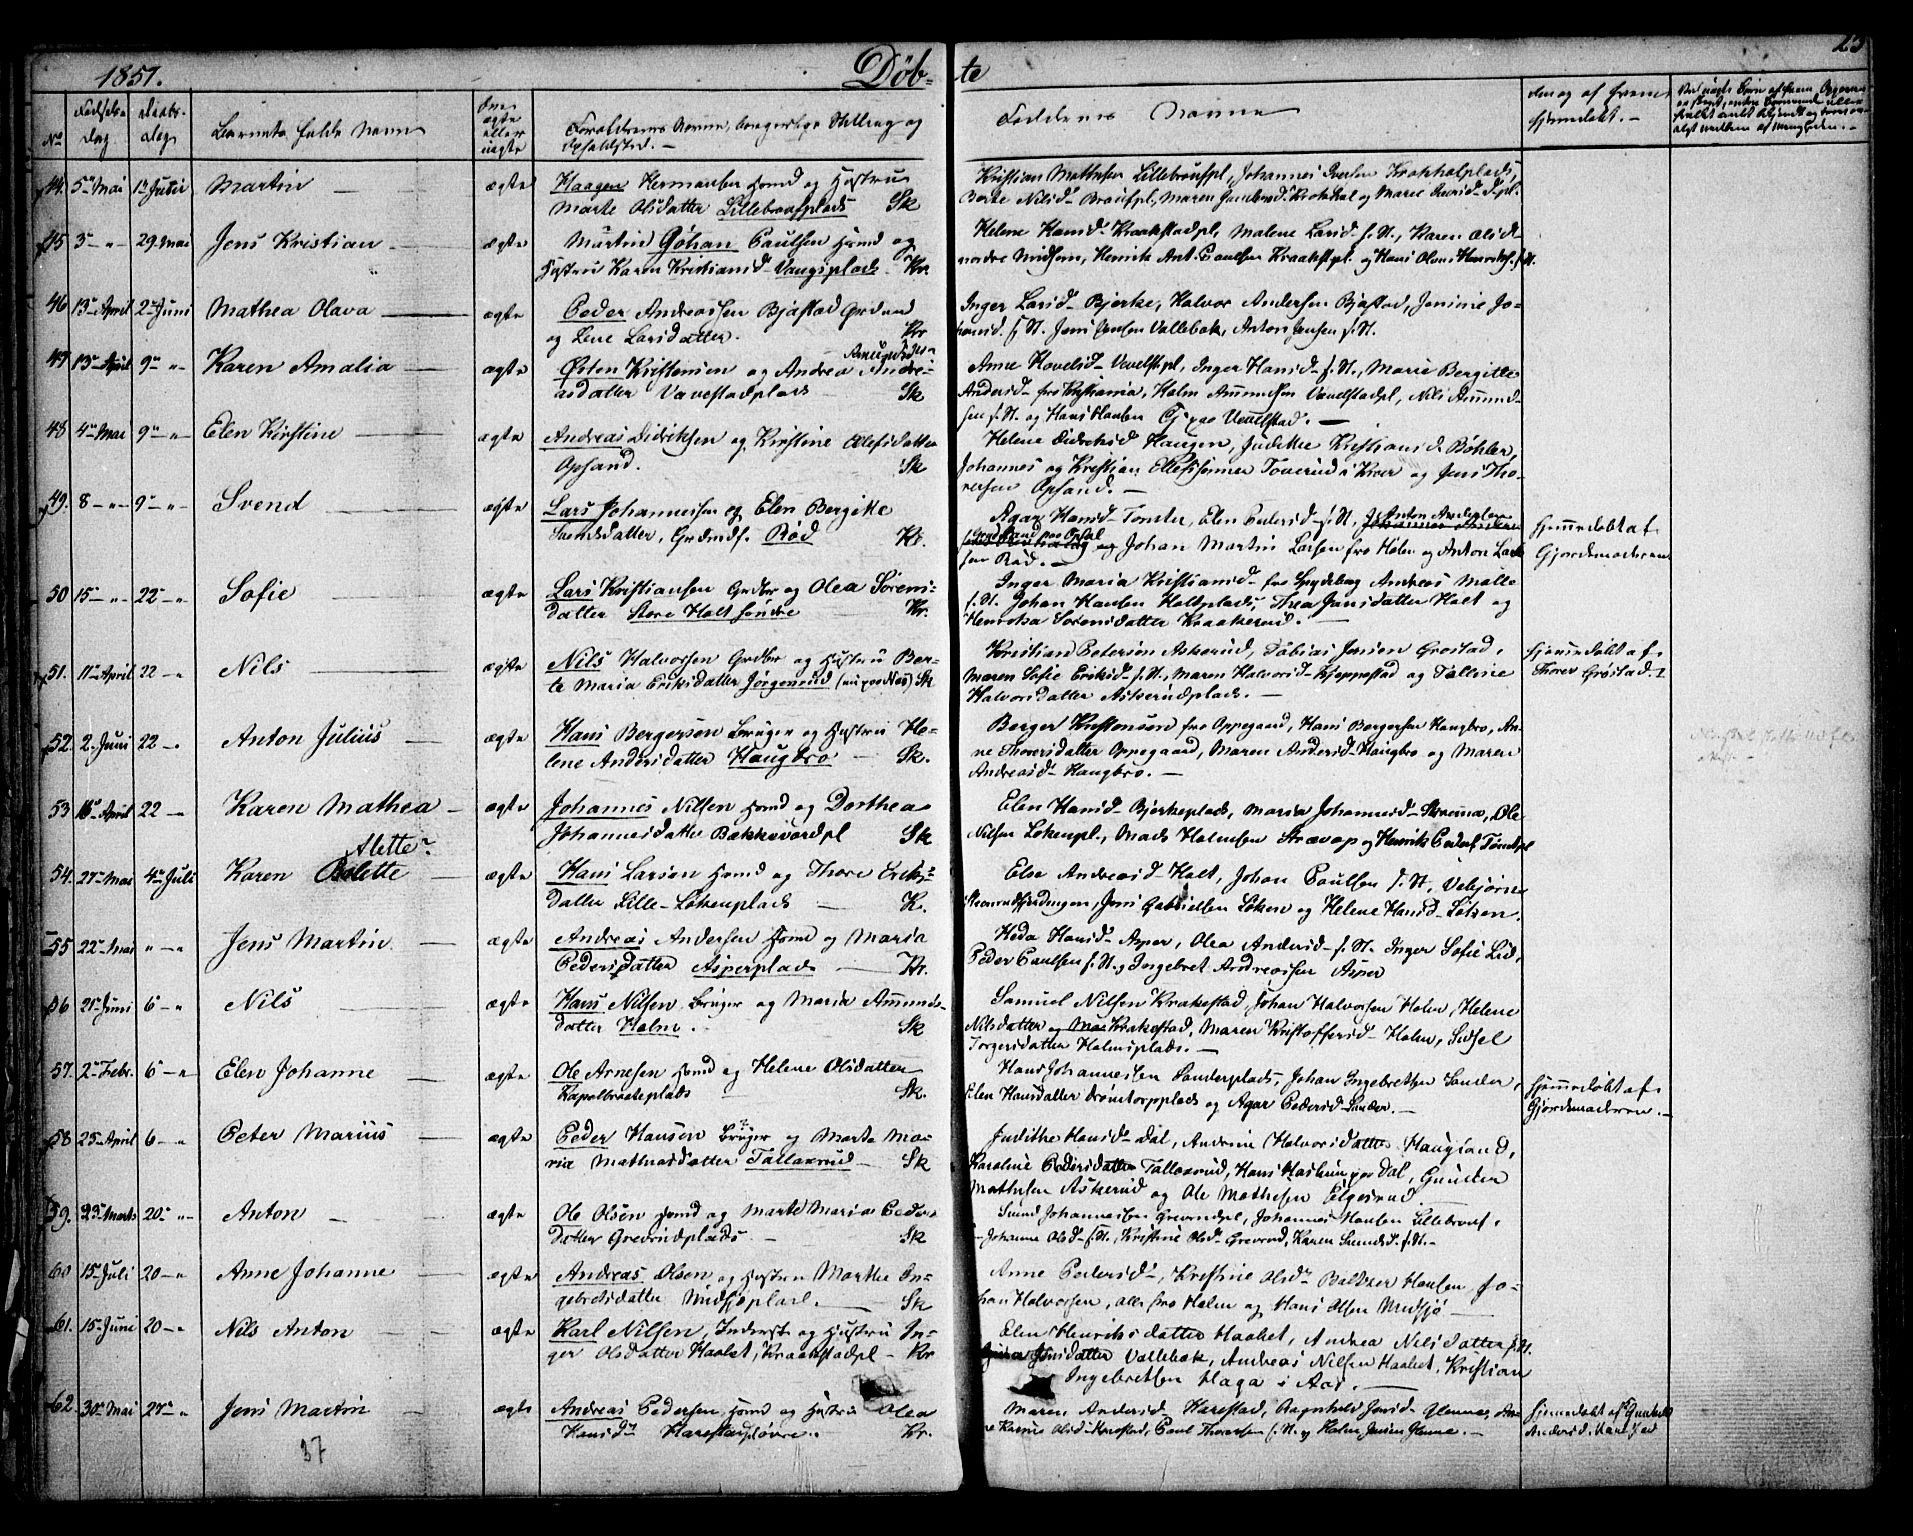 1851. Døb- te 23
No Fødsels- Dag Daabs- dag Barnets fulde Navn Om ægte eller uægte Forældrenes Navne, borgerlige Stilling og Opholdsted.- Faddernes Navne
44. 5te Mai 1te Juni Martin ægte Haagen Hermansen Hmd og Hustru
Marte Olsdatter Lillebraufplads Sk
Kristian Mathisen Lillebraufpl, Johannes Iversen Krokholplads,
45 3- " 29. Mai Jens Kristian ægte Martin Johan Paulsen Hmd og
Hustru Karen Kristiansd- Vangsplads Kr.
Helene Hansd- Kraakstadpl, Malene Larsd- f. St., Karen Olsd-
nordre Midsem, Henrik Ant. Paulsen Kraakstpl. og Hans Olaus Henriks. f. St.
46 13de April 2de Juni Mathea Olava ægte Peder Andreassen Bjastad Grdmd
og Lene Larsdatter. Kr
Inger Larsd- Bjerke, Halvor Andersen Bjastad, Jensine Jo-
hansd. f. St. Jens Jensen Vallebæk, Anton Jensen f. St.
47 13de April 9de " Karen Amalia ægte Østen Kristensen og Andrea Andre-
asdatter Vevelstadplads Sk
Anne Hovelsd- Vevelstpl, Inger Hansd- f. St., Marie Bergitte
Andersd- fra Kristiania, Holm Amundsen Vevelstadpl, Nils Amund-
sen f. St. og Hans Hansen Vevelstad. -
48 4de Mai 9de " Elen Kirstine ægte Andreas Didriksen og Kirstine Olefsdatter
Opsand. Sk
Helene Didriksd Haugen, Judithe Kristiansd. Bøhler,
Johannes og Kristian Ellefssønner Toverud i Kroer og Jens Tho-
resen Opsand. -
49. 8 - " 9de " Svend ægte Lars Johannesen og Elen Bergitte
Svendsdatter, Grdmdf. Rød Kr.
Agar Hansd- Tomter, Elen Pedersd- f. St.
Johan Martin Larsen fra Holm og Anton Lar-
sen Rød. -
Hjemmedøbt af
Gjordemoderen
50 15 - " 22 - " Sofie ægte Lars Kristiansen Grdbr og Olea Sørens-
datter Store Holt søndre Kr.
Inger Maria Kristiansd- fra Spydeberg Andreas Molle
f. St. Johan Hansen Holtplads, Thea Jansdatter Holt og
Henrika Sørensdatter Kraakerud.
51. 11te April 22 - " Nils ægte Nils Halvorsen Grdbr og Hustru Ber-
te Maria Eriksdatter Jørgensrud Sk
Kristian Petersen Askerud, Tobias Jensen Grøstad,
Maren Sofie Eriksd- f. St., Maren Halvorsd- Kjeppestad og Talline
Halvorsdatter Askerudplads. -
Hjemmedøbt af
Thorer Grøstad.
52. 2. Juni 22 - " Anton Julius ægte Hans Bergersen Bruger og Hustru He-
lene Andersdatter Haugbro Sk.
Berger Kristensen fra Oppegaard, Hans Bergersen Haugbro, An-
ne Thoresdatter Oppegaard, Maren Andersd- Haugbro og Maren
Andreasd- Haugbro. -
53 16de April 22 - " Karen Mathea ægte Johannes Nilsen Hmd og Dorthea
Johannesdatter Bakkevordpl Sk
Elen Hansd- Bjerkeplads, Maria Johannesd- Ole
Nilsen Løkenpl., Mads Holmsen og Henrik Peders. Tomtpl
54. 27de Mai 4de Juli Karen Alette ægte Hans Larsen Hmd og Thore Eriks-
datter Lille-Løkenplads K.
Else Andreasd Holt, Johan Paulsen f. St, Vebjørn
Jens Gabrielsen Løken og Helene Hansd- Løken.
55 22de Mai " - " Jens Martin ægte Andreas Andersen Hmd og Maria
Pedersdatter Asperplads Kr.
Heda Hansd- Asper, Olea Andersd- f. St. Inger Sofie Lid,
Peder Paulsen f. St. og Ingebret Andreassen Asper
56 21de Juni 6 - " Nils ægte Hans Nilsen, Bruger og Maria Amunds-
datter Holm. Sk
Samuel Nilsen Krakestad, Johan Halvorsen Holm, Helene
Nilsdatter Krakestad, Maren Kristoffersd- Holm, Sidsel
Torgersdatter Holmsplads. -
57. 2de Febr. 6 - " Elen Johanne ægte Ole Arnesen Hmd og Helene Olsdatter
Kapelbraateplads Sk.
Hans Johannessen Sanderplads, Johan Ingebretsen Sander,
Elen Hansdatter Drømtorpplads og Agar Pedersd- Sander. -
Hjemmedøbt af
Gjordemoderen. -
58 25de April 6 - " Peter Marius ægte Peder Hansen Bruger og Marte Ma-
ria Mathisdatter Tallaxrud Sk
Judithe Hansd- Dal, Andrine Halvorsdatter Haugland,
Karoline Pedersdatter Tallaxrud, Hans Dal, Gunder
Mathisen Askerud og Ole Mathisen Elgesrud
59. 23de Marts 20 - " Anton ægte Ole Olsen Hmd og Marte Maria Peders-
datter Grevrudplads. Sk
Svend Johannessen Grevrudpl, Johannes Hansen Lillebrauf,
Johanne Olsd- f. St., Kristine Olsd- Grevrud, Karen Svendsd- f. St. -
60 15de Juli 20 - " Anne Johanne ægte Andreas Olsen og Hustru Marthe In-
gebretsdatter Midsjøplads. Sk
Anne Pedersd-, Kristine Olsd- Baltzer Hansen Jo-
han Halvorsen, alle fra Holm og Hans Olsen Midsjø
61. 15de Juni 20 - " Nils Anton ægte Karl Nilsen, Inderst og Hustru In-
ger Olsdatter Haabet, Kraakstadpl - Kr
Elen Henriksdatter Haabet, Andrea Nilsdatter f. St.
Jensdatter Vallebæk, Andreas Nilsen Haabet, Kristian
Ingebretsen Haga i Aas. -
62. 30te Mai 27de " Jens Martin ægte Andreas Pedersen, Hmd og Hustru Olea
Hansd- Harestad øvre. Kr.
Maren Andersd- Harestad, Ragnhild Jensd- Glenne, An-
ne Karine Olsd- Harestad, Paul Thoresen f. St. og Holm Jensen Glenne. -
Hjemmedøbt af Gunhild
Andersd. Harestad
37